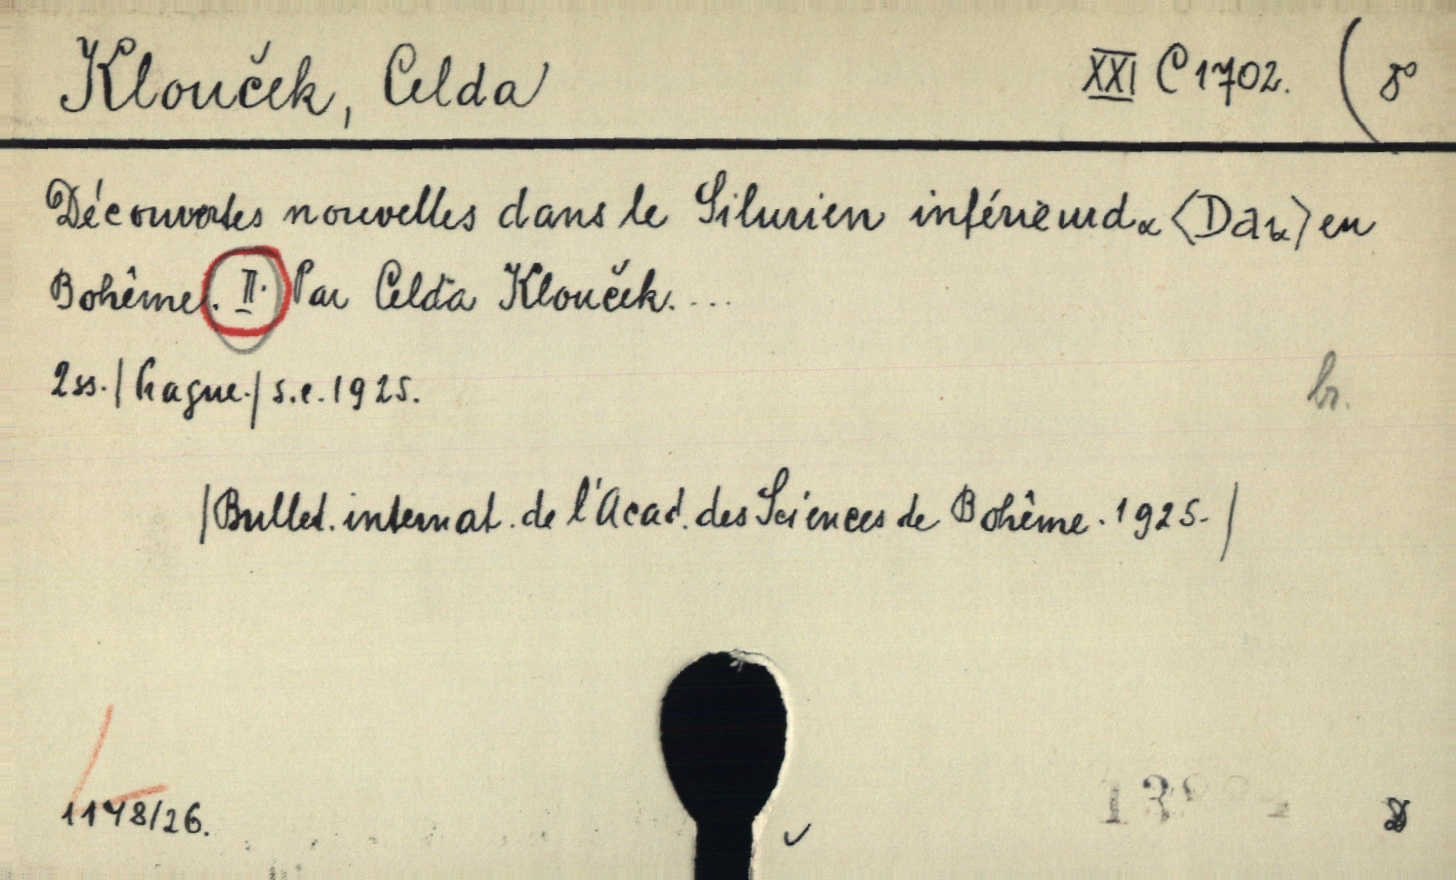 Klouček, Celda XXI C 1702. ( 8°
Découvertes nouvelles dans le Silurien inférieur dα <Dα1α> en
Bohême. II. Par Celda Klouček. ...
2 ss. / Prague. / s.e. 1925.
br.
/ Bullet. internat. de l'Acad. des Sciences de Bohême. 1925. /
1178/26.